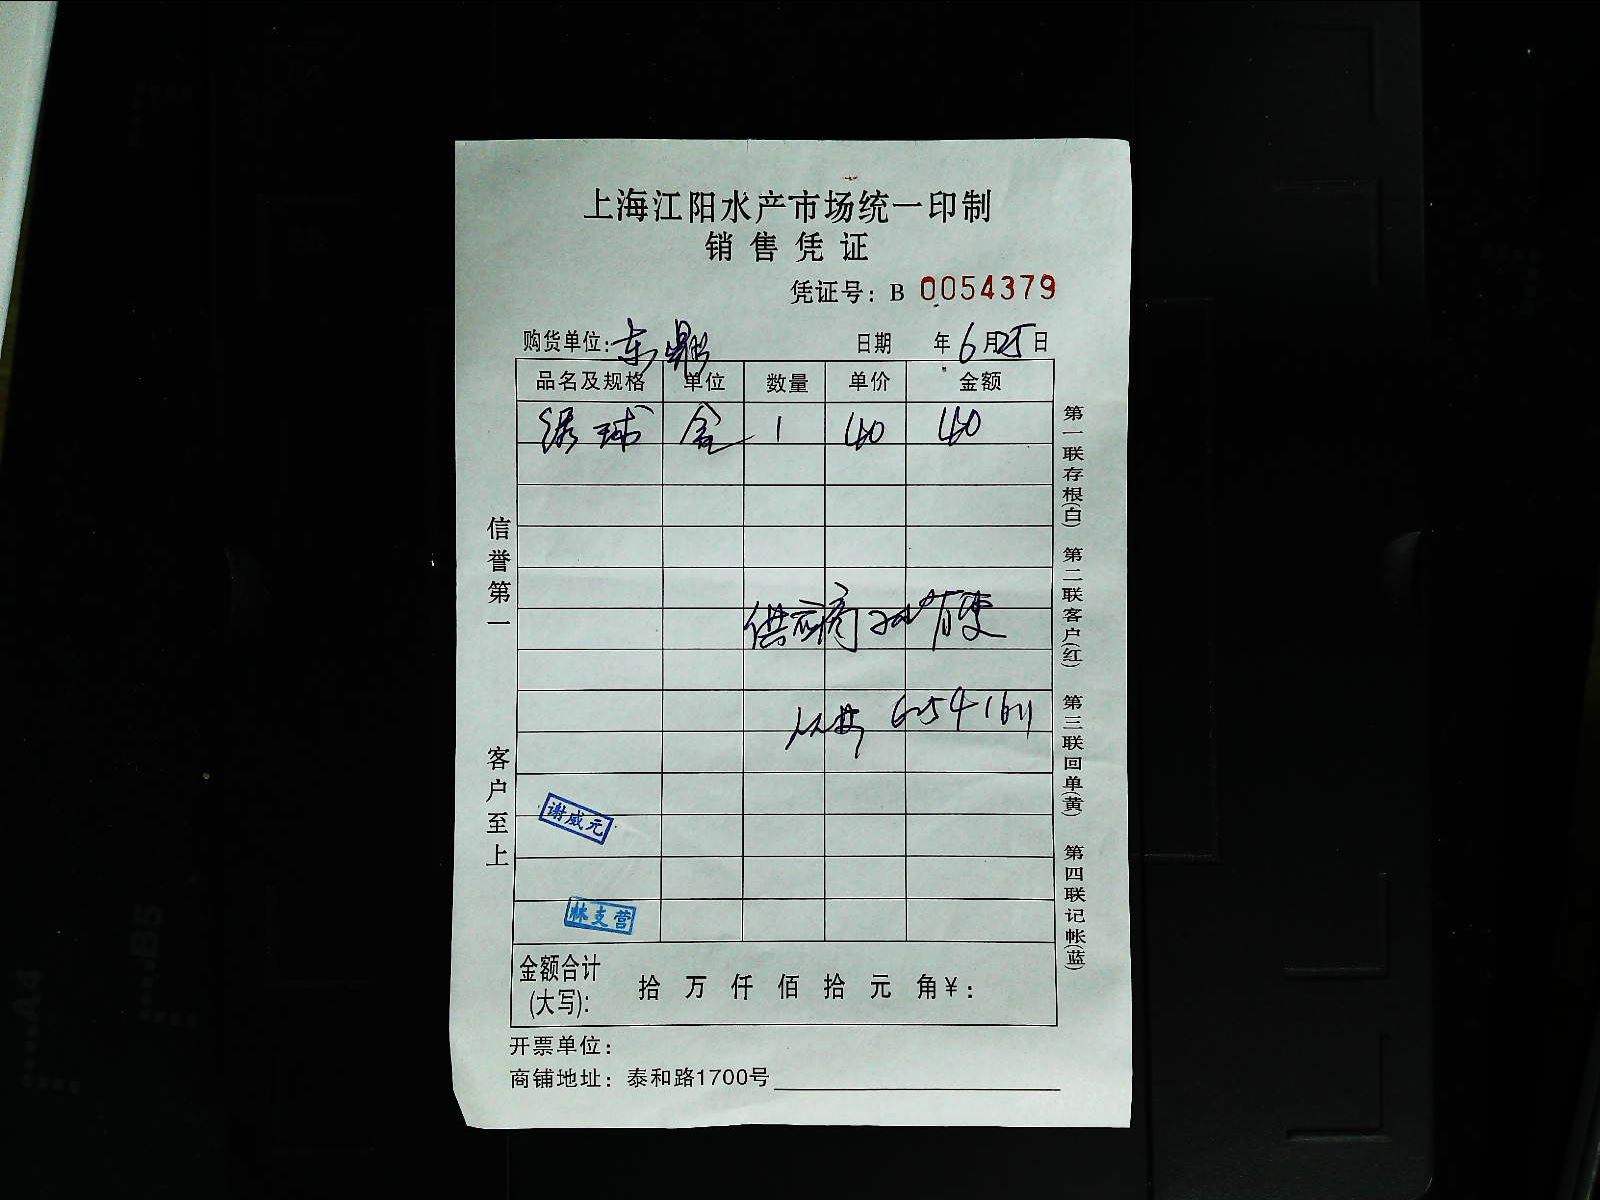 上海江阳水产市场统一印制
销售凭证
凭证号：B 0054379
购货单位：东鼎 日期 年6月25日
品名及规格 单位 数量 单价 金额
绣球 盒 1 40 40
供应商
6541611
谢威元
林支营
金额合计(大写)： 拾 万 仟 佰 拾 元 角￥：
开票单位：
商铺地址：泰和路1700号
信誉第一 客户至上
第一联存根(白) 第二联客户(红) 第三联回单(黄) 第四联记帐(蓝)
A4
B5